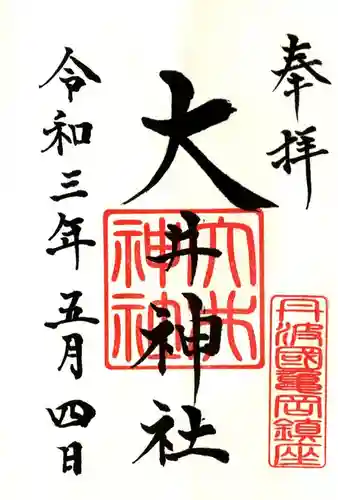 奉拝
丹波國亀岡鎮座
大井神社
大井神社
令和三年五月四日